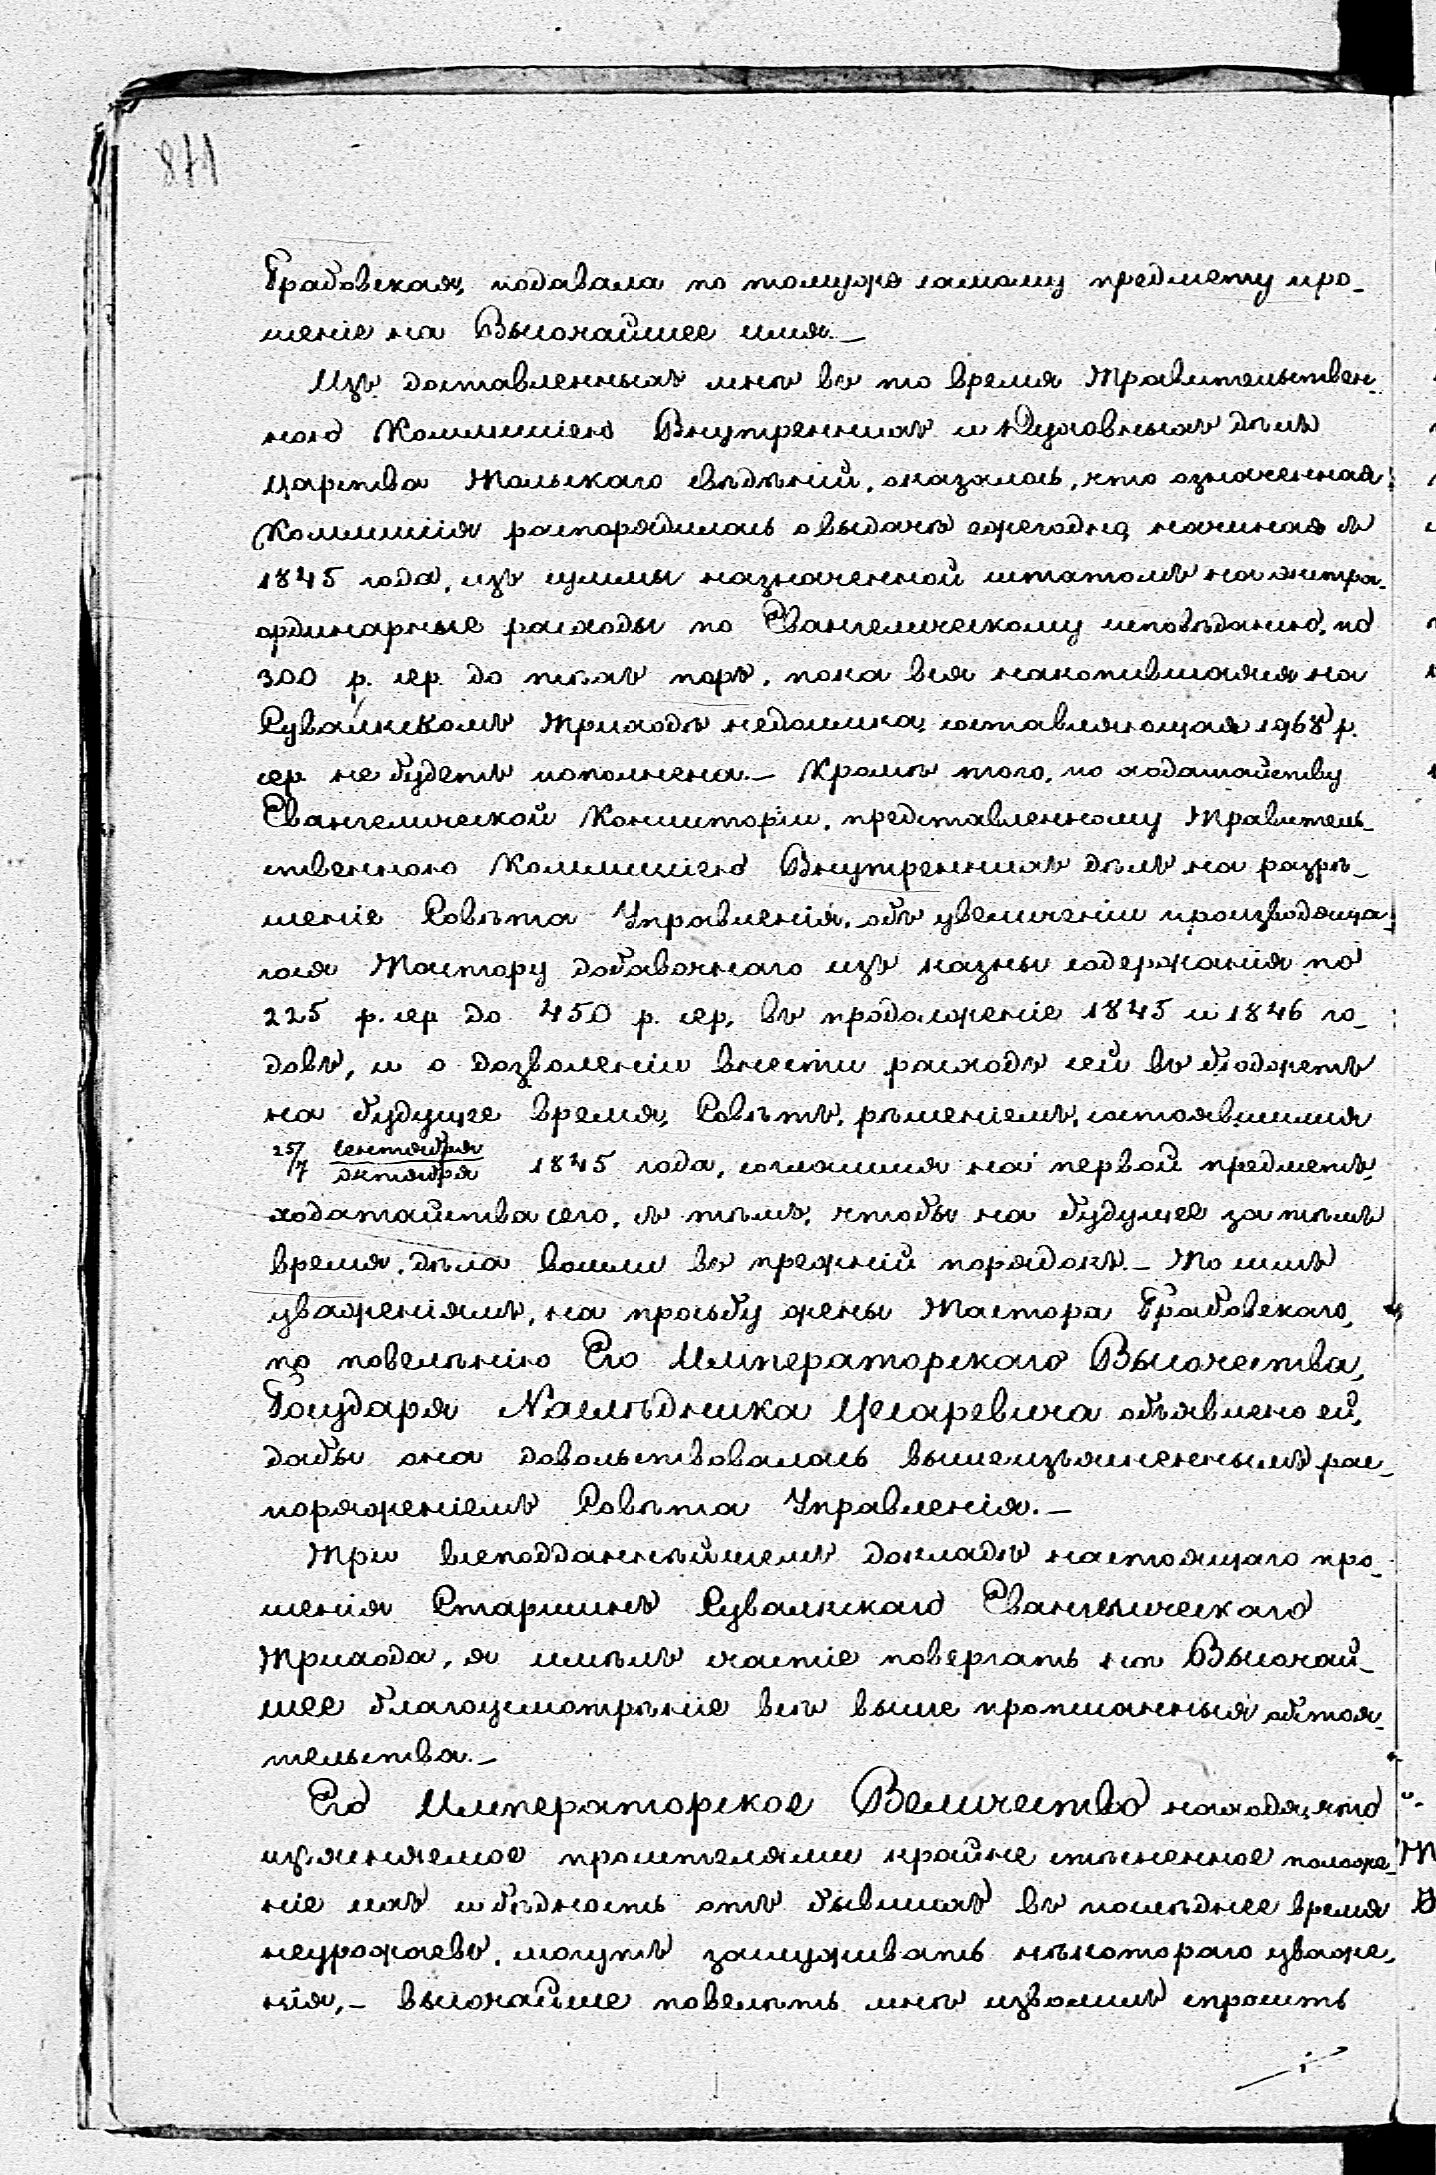 Грабовская, подавала по томуже самому предмету про-
шеніе на Высочайшее имя.-
Изъ доставленныхъ мнѣ въ то время Правительствен-
ною Коммисіею Внутреннихъ и Духовныхъ дѣлъ
Царства Польскаго свѣдѣній, оказалось, что означенная
Коммисія распорядилась о выдачѣ ежегодно, начиная съ
1845 года, изъ суммы назначенной штатомъ на экстра-
ординарные расходы по Евангелическому исповѣданію, по
300 р. сер. до тѣхъ поръ, пока вся накопившаяся на
Сувалкскомъ Приходѣ недоимка, составляющая 1968 р.
сер. не будетъ пополнена.- Кромѣ того, по ходатайству
Евангелической Консисторіи, представленному Правитель-
ственною Коммисіею Внутреннихъ дѣлъ на разрѣ-
шеніе Совѣта Управленія, объ увеличеніи производяща-
гося Пастору добавочнаго изъ казны содержанія по
225 р. сер до 450 р. сер, въ продолженіе 1845 и 1846 го-
довъ, и о дозволеніи внести расходъ сей въ бюджетъ
на будущее время, Совѣтъ, рѣшеніемъ, состоявшимся
25/7 Сентября/Октября 1845 года, согласился на первой предметъ
ходатайства сего, съ тѣмъ, чтобы на будущее затѣмъ
время, дѣла вошли въ прежній порядокъ.- По симъ
уваженіямъ, на просьбу жены Пастора Грабовскаго,
по повелѣнію Его Императорскаго Высочества,
Государя Наслѣдника Цесаревича объявлено ей,
дабы она довольствовалась вышеизъясненнымъ рас-
поряженіемъ Совѣта Управленія.-
При всеподданнѣйшемъ докладѣ настоящаго про-
шенія Старшинъ Сувалкскаго Евангелическаго
Прихода, я имѣлъ счастіе повергать на Высочай-
шее благоусмотрѣніе всѣ выше прописанныя обстоя-
тельства.-
Его Императорское Величество находя, что
изъясняемое просителями крайне стѣсненное положе-
ніе ихъ и бѣдность отъ бывшихъ въ послѣднее время
неурожаевъ, могутъ заслуживать нѣкотораго уваже-
нія,- высочайше повелѣть мнѣ изволилъ спросить